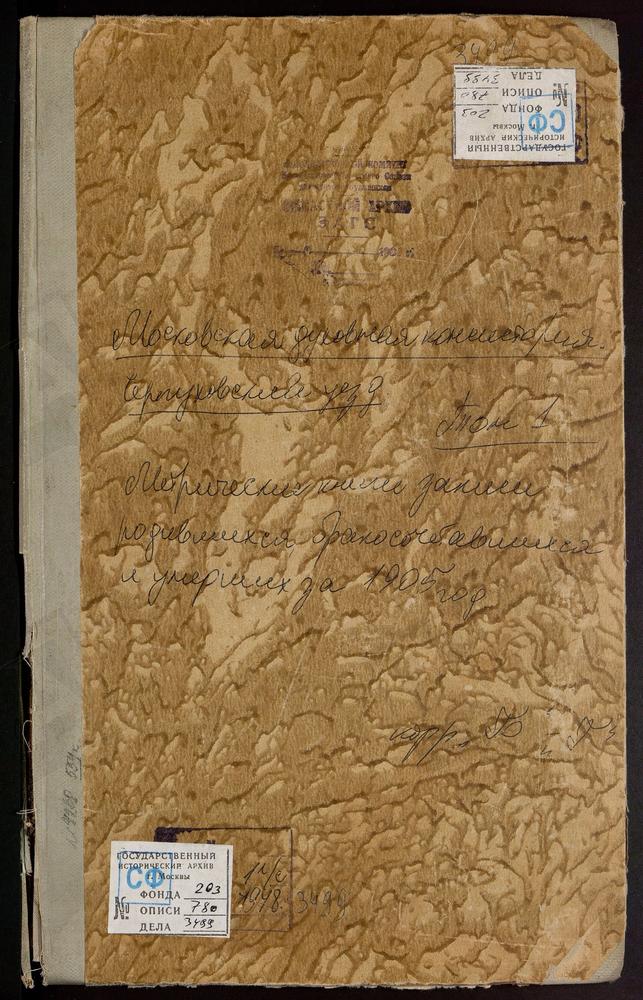 3499
ГОСУДАРСТВЕННЫЙ
ИСТОРИЧЕСКИЙ АРХИВ
г. Москвы
СФ
№
ФОНДА 203
ОПИСИ 780
ДЕЛА 3499
ОБЛАСТНОЙ АРХИВ
ЗАГС
Московская духовная консистория.
Серпуховский уезд
Том 1
Метрические книги записи
родившихся бракосочетавшихся
и умерших за 1905 год
ГОСУДАРСТВЕННЫЙ
ИСТОРИЧЕСКИЙ АРХИВ
г. Москвы
СФ
№
ФОНДА 203
ОПИСИ 780
ДЕЛА 3499
3499